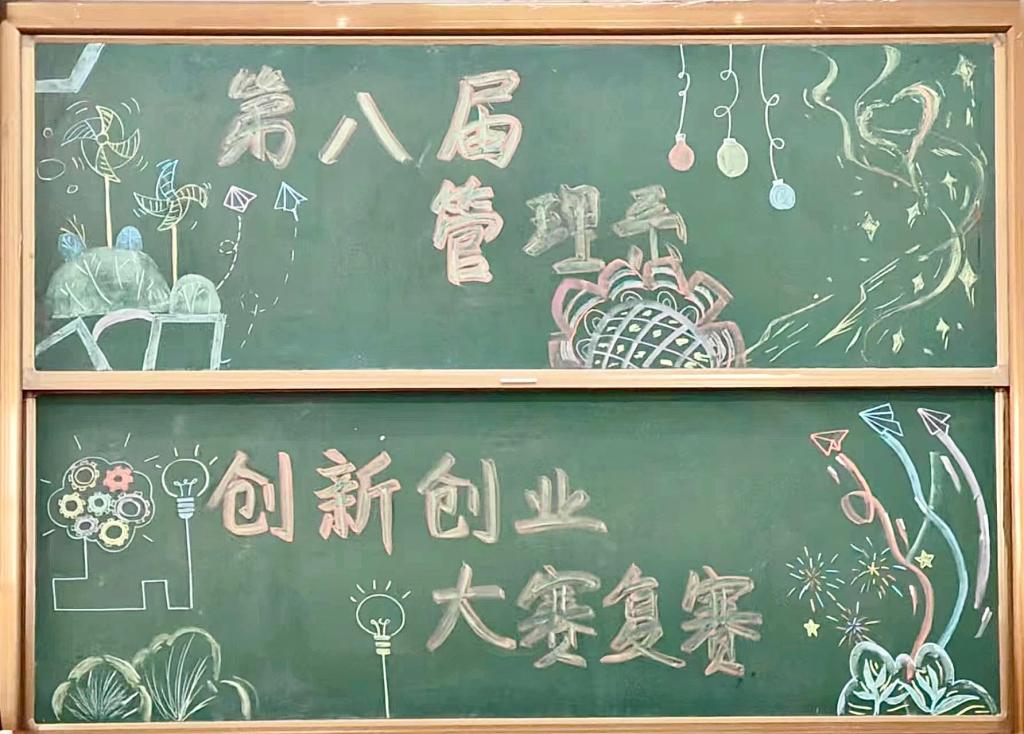 第八届
管理
创新创业
大赛复赛